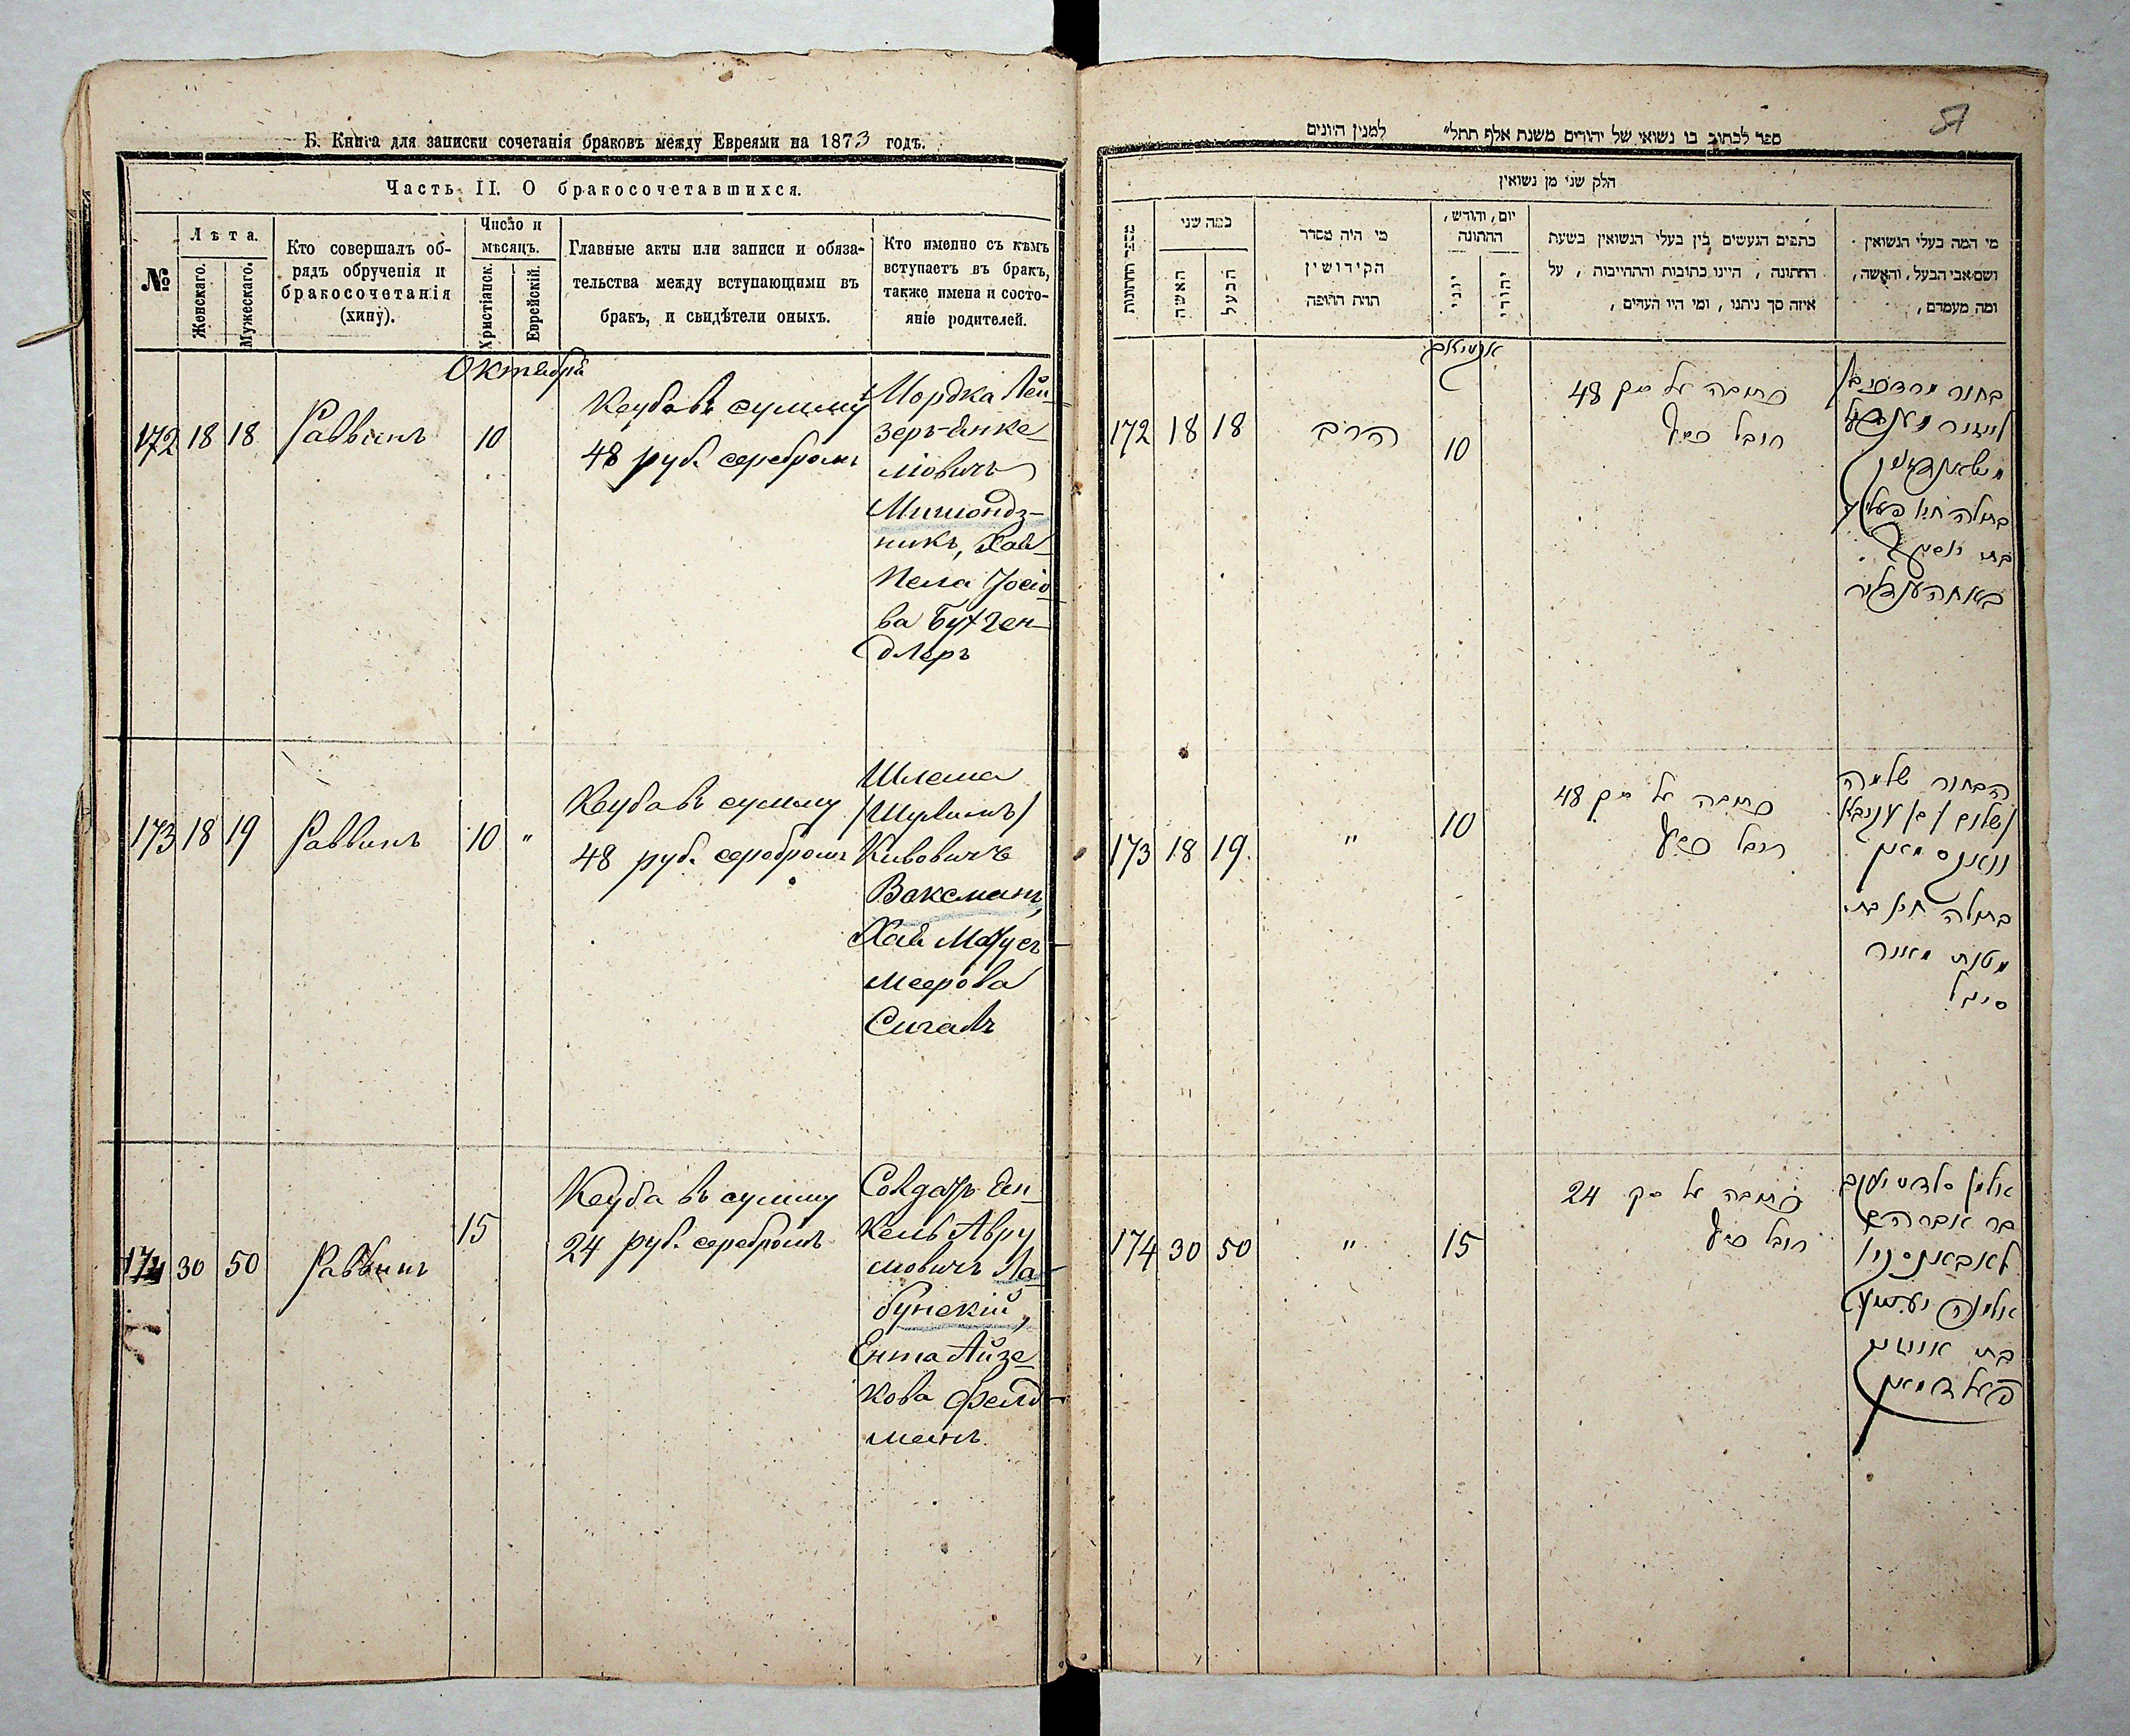 Б. Книга для записки сочетанія браковъ между Евреями на 1873 годъ.
Часть II. О бракосочетавшихся.
№
Лѣта.
Женскаго.
Мужескаго.
Кто совершалъ об-
рядъ обрученія и
бракосочетанія
(хипу).
Число и
мѣсяцъ.
Христіанск.
Еврейскій.
Главные акты или записи и обяза-
тельства между вступающими въ
бракъ, и свидѣтели оныхъ.
Кто именно съ кѣмъ
вступаетъ въ бракъ,
также имена и состо-
яніе родителей.
Октября
172 18 18 Раввинъ 10
Кеуба въ сумму
48 руб. серебромъ
Мордка Лей-
зеръ Янке-
ліовичъ
никъ, Хая
Пела Іосіо-
ва Бухген-
длеръ
173 18 19 Раввинъ 10 "
Кеуба въ сумму
48 руб. серебромъ
Шлема
(Шулимъ)
Кивовичъ
Ваксманъ,
Хая Мотус
меерова
Сигалъ
174 30 50 Раввинъ 15
Кеуба въ сумму
24 руб. серебромъ
Солдатъ Ян-
кель Авру
мовичъ Ла-
бунскій,
Ента Айзе-
кова Фелд-
манъ.
57
ספר לכתוב בו נשואי של יהודים משנת אלף תתל״ למנין היונים
חלק שני מן נשואין
מספר החתונות
כמה שני
האשה
הבעל
מי היה מסדר
הקידושין
תחת החופה
יום, וחודש,
החתונה
יוני
יהודי
כתבים הנעשים בין בעלי הנשואין בשעת
החתונה, היינו כתובות והתחייבות, על
איזה סך ניתנו, ומי היו העדים,
מי המה בעלי הנשואין
ושם אבי הבעל, והאשה,
ומה מעמדם,
172 18 18 הרב 10
כתובה על סך 48
רובל כסף
173 18 19. " 10
כתובה על סך 48
רובל כסף
הבחור שלמה
וואקסמאן
בתולה חי' בת
סיגל
174 30 50 " 15
כתובה על סך 24
רובל כסף
בר אברהם
בת אייזיק
פעלדמאן